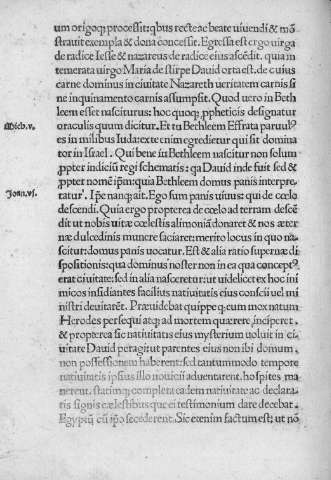 um origoq; processit: qbus recte ac beate uiuendi & mõ
strauit exempla & dona concessit. Egressa est ergo uirga
de radice Iesse & nazareus de radice eius ascẽdit. quia in
temerata uirgo Maria de stirpe Dauid orta est. de cuius
carne dominus in ciuitate Nazareth ueritatem carnis si
ne inquinamento carnis assumpsit. Quod uero in Beth
leem esset nasciturus: hoc quoq; ppheticis designatur
oraculis quum dicitur. Et tu Bethleem Effrata paruul'
Mich.v.
es in milibus Iuda: ex te enim egredietur qui sit domina
tor in Israel. Qui bene in Bethleem nascitur non solum
ppter indiciũ regi schematis: qa Dauid inde fuit sed &
ppter nomẽ ipm: quia Bethleem domus panis interpre
tatur. Ipse nanq; ait. Ego sum panis uiuus: qui de cœlo
Joan.vi.
descendi. Quia ergo propterea de cœlo ad terram descẽ
dit ut nobis uitæ cœlestis alimoniã donaret & nos æter
næ dulcedinis munere saciaret: merito locus in quo na
scitur: domus panis uocatur. Est & alia ratio supernæ di
spositionis: qua dominus noster non in ea qua concept'
erat ciuitate: sed in alia nasceretur: ut uidelicet ex hoc ini
micos insidiantes facilius natiuitatis eius conscii uel mi
nistri deuitarẽt. Præuidebat quippe q; eum mox natum
Herodes persequi atq; ad mortem quærere inciperet.
& propterea sic natiuitatis eius mysterium uoluit in ci
uitate Dauid peragi ut parentes eius non ibi domum.
non possessionem haberent: sed tantummodo tempore
natiuitatis ipsius illo nouicii aduentarent. hospites ma
nerent. statimq; completa eadem natiuitate ac declara
tis signis cælestibus que ei testimonium dare decebat.
Egyptũ cũ ipo secederent. Sic exenim factum est: ut nõ